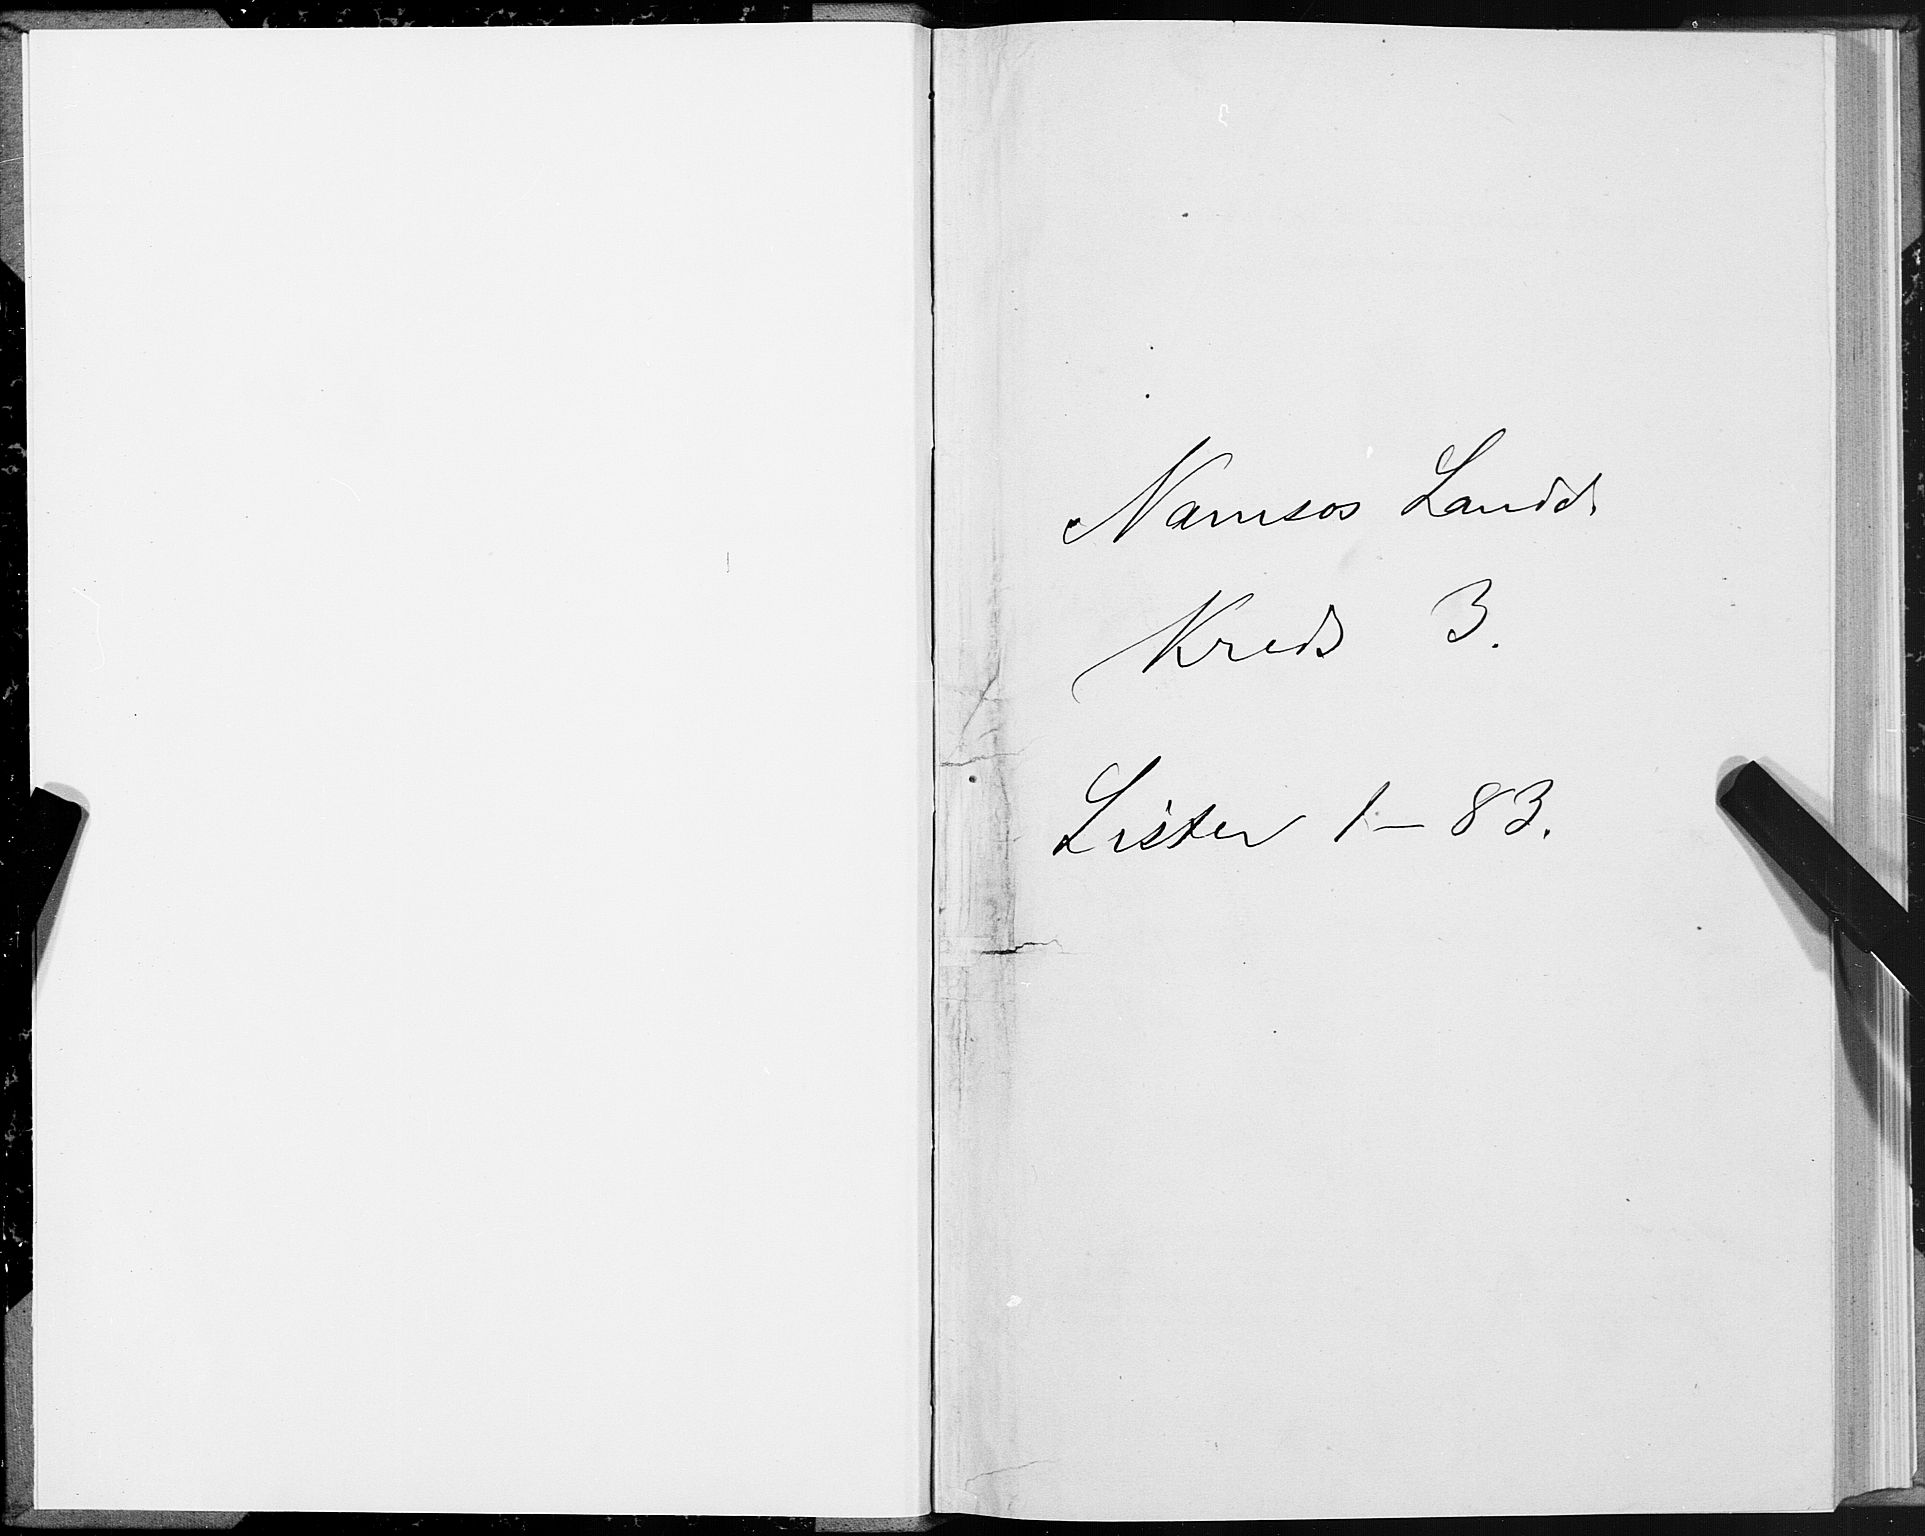 Namsos Landd.
Kreds 3.
Lister 1 – 83.